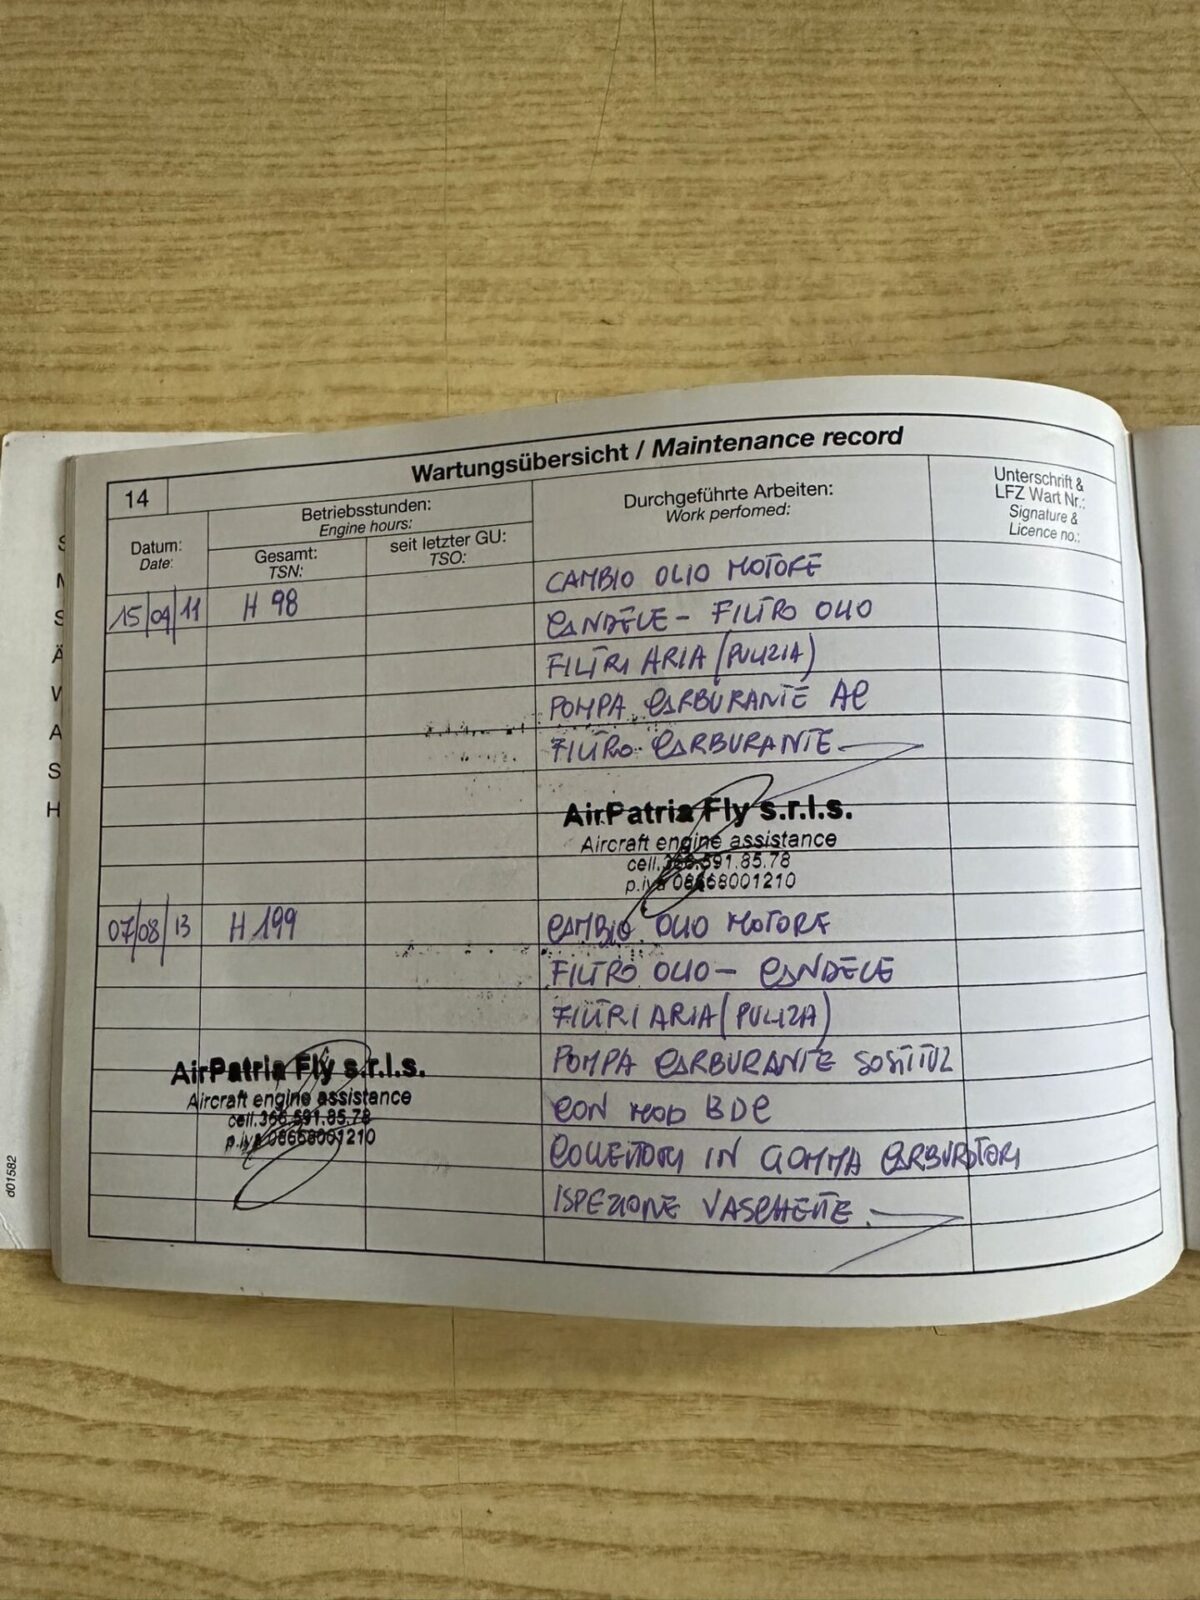 Wartungsübersicht / Maintenance record
14
Datum:
Date:
Betriebsstunden:
Engine hours:
Gesamt:
TSN:
seit letzter GU:
TSO:
Durchgeführte Arbeiten:
Work perfomed:
Unterschrift &
LFZ Wart Nr.:
Signature &
Licence no.:
CAMBIO OLIO MOTORE
15/09/11 H 98
CANDELE - FILTRO OLIO
FILTRI ARIA (PULIZIA)
POMPA CARBURANTE AC
FILTRO CARBURANTE
AirPatria Fly s.r.l.s.
Aircraft engine assistance
cell.366.591.85.78
p.iva 08668001210
07/08/13 H 199 CAMBIO OLIO MOTORE
FILTRO OLIO - CANDELE
FILTRI ARIA (PULIZIA)
POMPA CARBURANTE
CON MOD BDC
COLLETTORI IN GOMMA CARBURATORI
ISPEZIONE VASCHETTE
AirPatria Fly s.r.l.s.
Aircraft engine assistance
cell.366.591.85.78
p.iva 08668001210
d01582
S
M
S
Ä
W
A
S
H